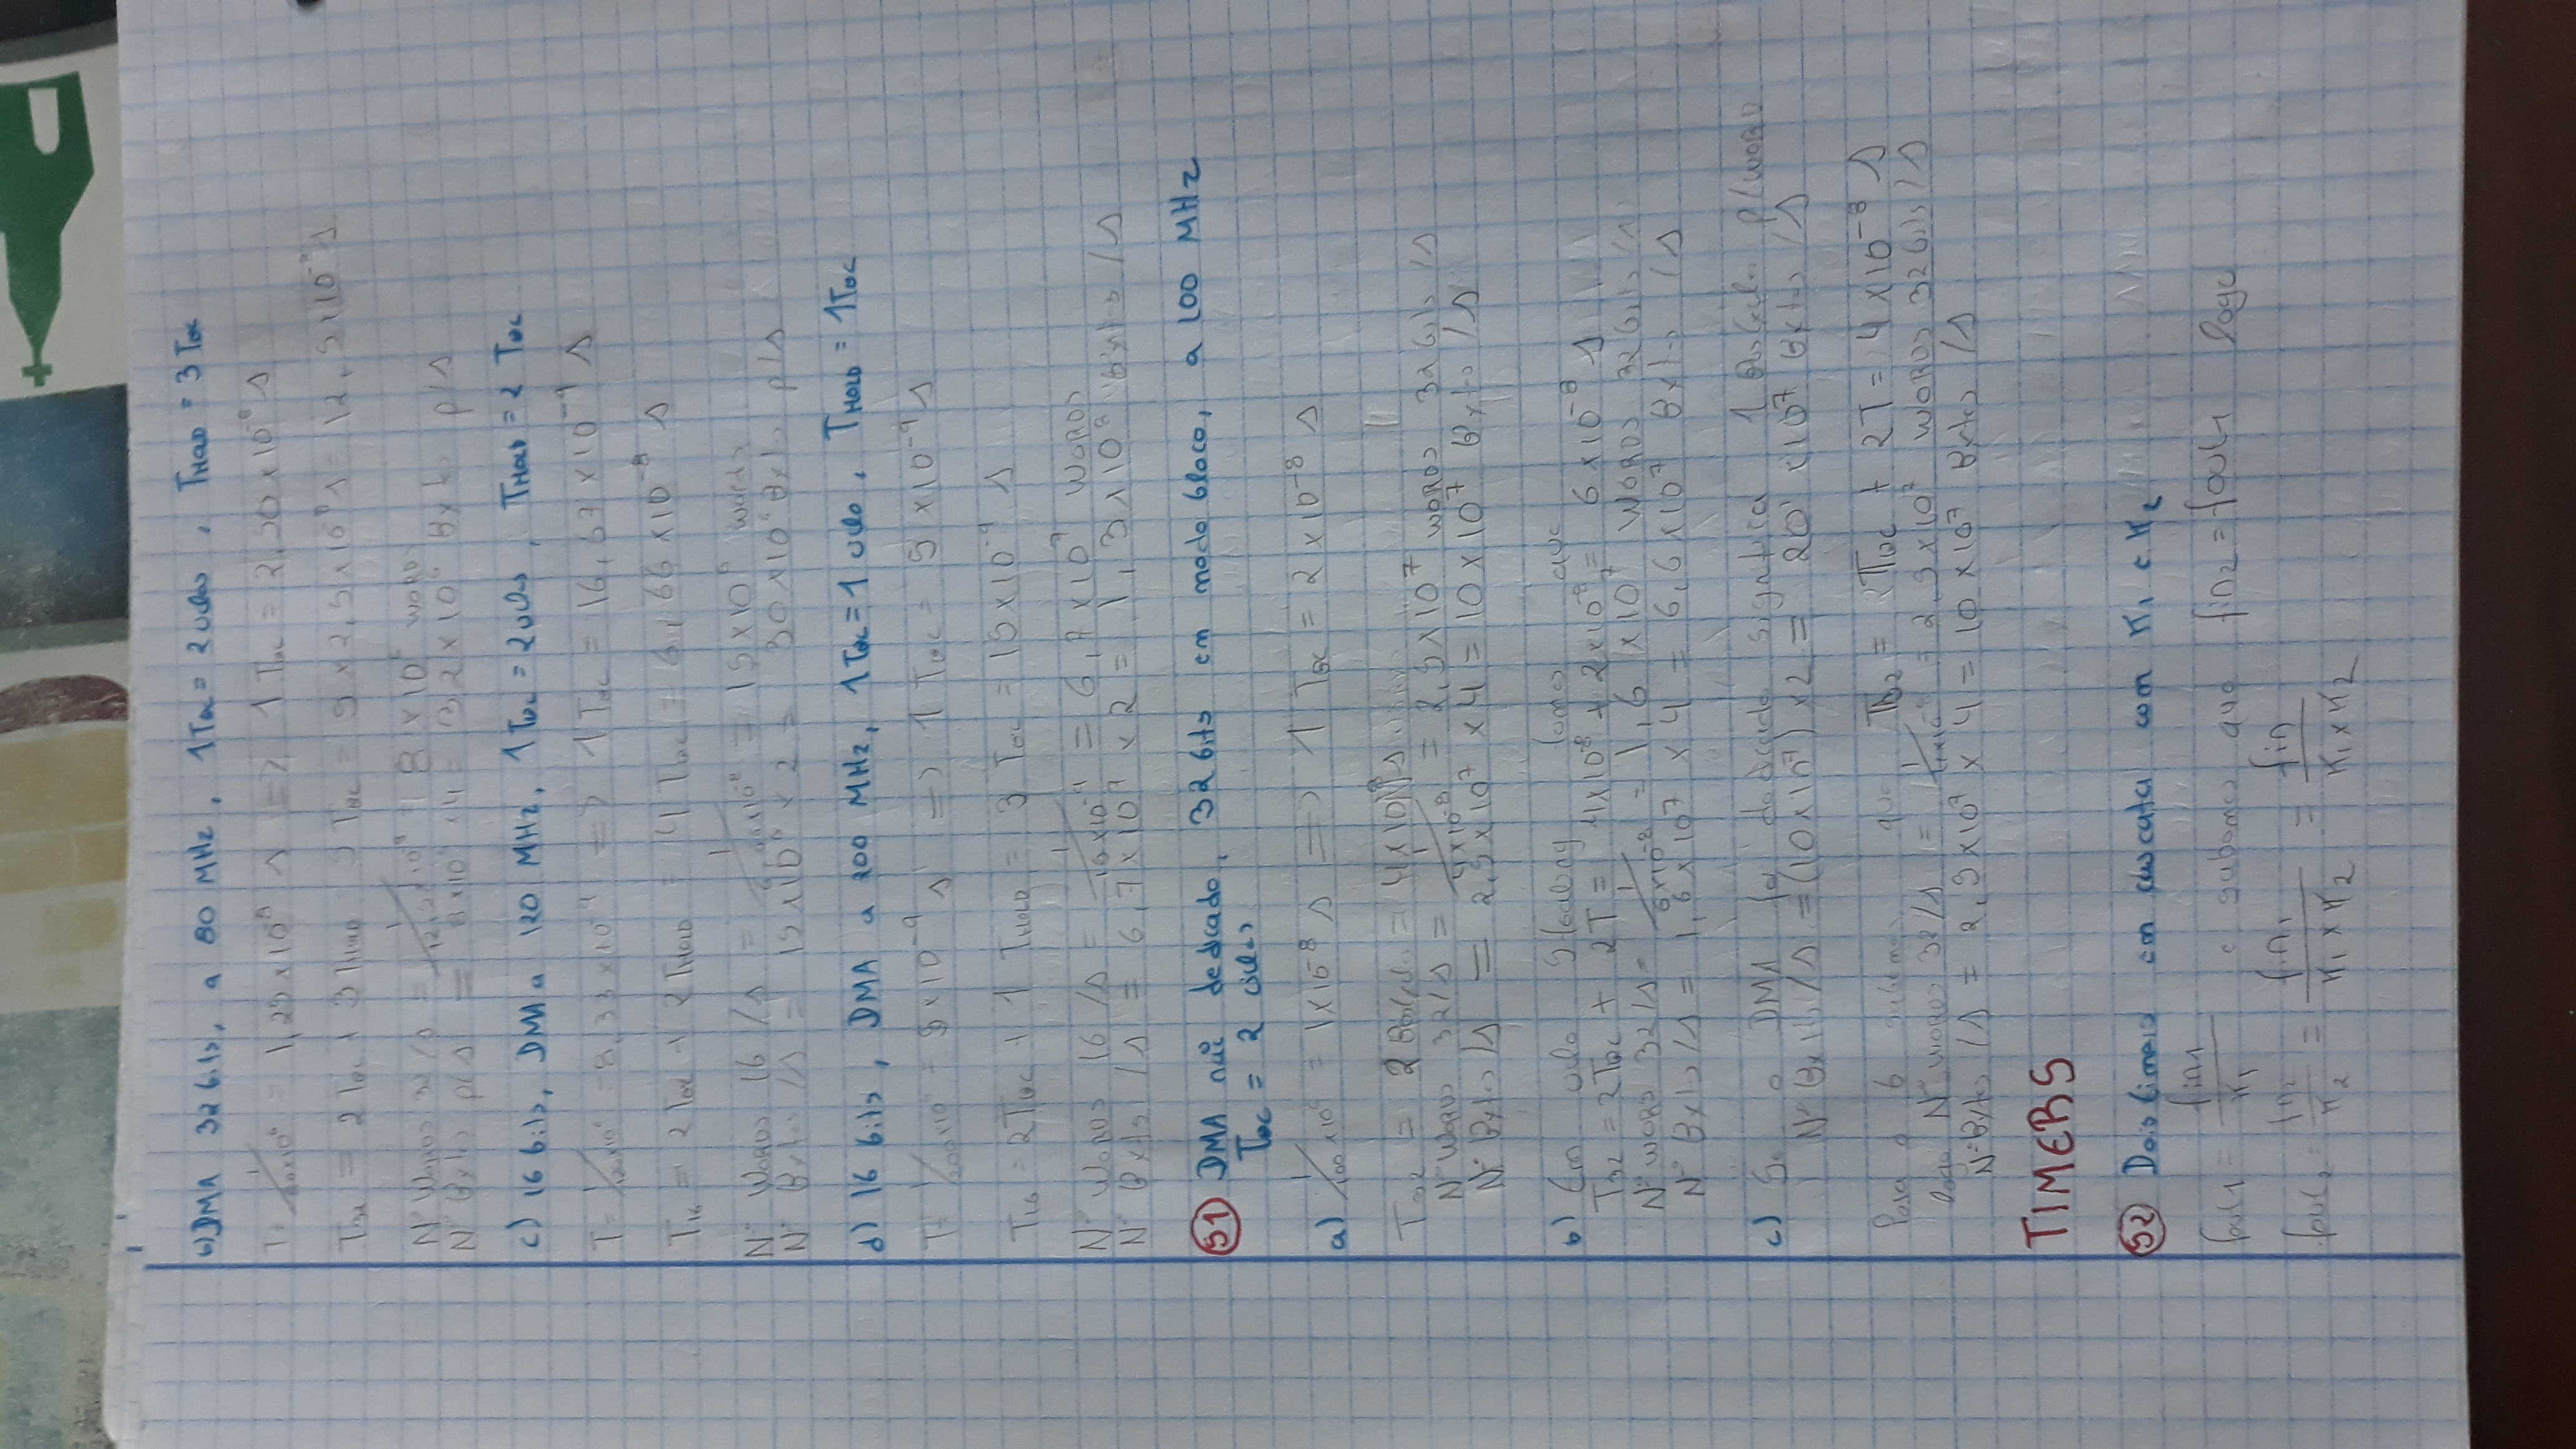 b) DMA 32 bits, a 80 MHz, 1 TBC = 2 ciclos, THOLD = 3 TBC
T = 1/80×10⁶ = 1,25×10⁻⁸ s => 1 TBC = 2,50×10⁻⁸ s
T32 = 2 TBC + 3 THOLD = 5 TBC = 5 × 2,5×10⁻⁸ s = 12,5×10⁻⁸ s
Nº WORDS 32 /s = 1/12,5×10⁻⁸ = 8×10⁶ WORDS
Nº Bytes p/s = 8×10⁶ × 4 = 32×10⁶ Bytes p/s
c) 16 bits, DMA a 120 MHz, 1 TBC = 2 ciclos, THOLD = 2 TBC
T = 1/120×10⁶ = 8,33×10⁻⁹ => 1 TBC = 16,67×10⁻⁹ s
T16 = 2 TBC + 2 THOLD = 4 TBC = 6,66×10⁻⁸ s
Nº WORDS 16 /s = 1/6,66×10⁻⁸ = 15×10⁶ words
Nº Bytes /s = 15×10⁶ × 2 = 30×10⁶ Bytes p/s
d) 16 bits, DMA a 200 MHz, 1 TBC = 1 ciclo, THOLD = 1 TBC
T = 1/200×10⁶ = 5×10⁻⁹ s => 1 TBC = 5×10⁻⁹ s
T16 = 2TBC + 1 THOLD = 3 TBC = 15×10⁻⁹ s
Nº WORDS 16 /s = 1/15×10⁻⁹ = 6,7×10⁷ WORDS
Nº Bytes /s = 6,7×10⁷ × 2 = 1,3×10⁸ Bytes /s
51 DMA não dedicado, 32 bits em modo bloco, a 100 MHz
TBC = 2 ciclos
a) 1/100×10⁶ = 1×10⁻⁸ s => 1 TBC = 2×10⁻⁸ s
T32 = 2 = 4×10⁻⁸ s
Nº WORDS 32/s = 1/4×10⁻⁸ = 2,5×10⁷ WORDS 32 bits /s
Nº Bytes /s = 2,5×10⁷ × 4 = 10×10⁷ Bytes /s
b) Em ciclo Stealing temos que
T32 = 2TBC + 2T = 4×10⁻⁸ + 2×10⁻⁸ = 6×10⁻⁸ s
Nº WORD 32/s = 1/6×10⁻⁸ = 1,6×10⁷ WORDS 32 bits /s
Nº Bytes /s = 1,6×10⁷ × 4 = 6,6×10⁷ Bytes /s
c) Se o DMA for dedicado significa 1 p/WORD
Nº Bytes /s = (10×10⁷) × 2 = 20×10⁷ Bytes /s
Para a b sabemos que T32 = TBC + 2T = 4×10⁻⁸ s
logo Nº WORDS 32/s = 1/4×10⁻⁸ = 2,5×10⁷ WORDS 32 bits /s
Nº Bytes /s = 2,5×10⁷ × 4 = 10×10⁷ Bytes /s
TIMERS
52 Dois timers em cascata com K1 e K2
fout1 = fin1/K1 e sabemos que fin2 = fout1 logo
fout2 = fin2/K2 = fin1/K1×K2 = fin/K1×K2